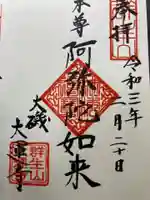 奉拝
令和三年
二月二十日
本尊 阿弥陀如来
大磯
大運寺
群生山